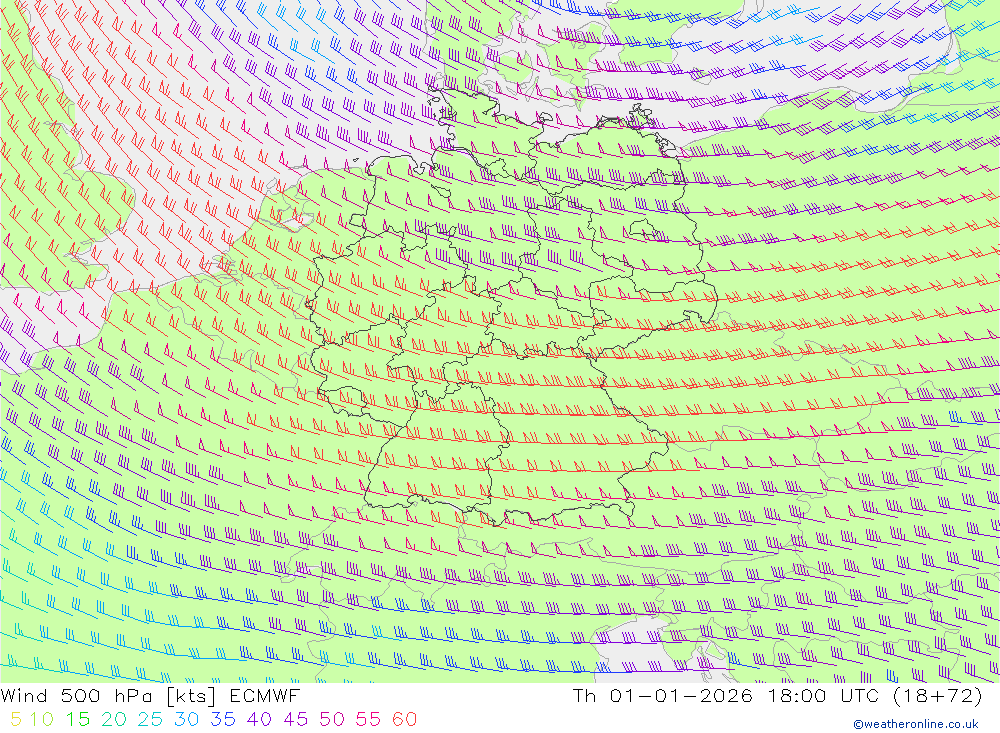 Wind 500 hPa [kts] ECMWF
Th 01-01-2026 18:00 UTC (18+72)
5 10 15 20 25 30 35 40 45 50 55 60
©weatheronline.co.uk